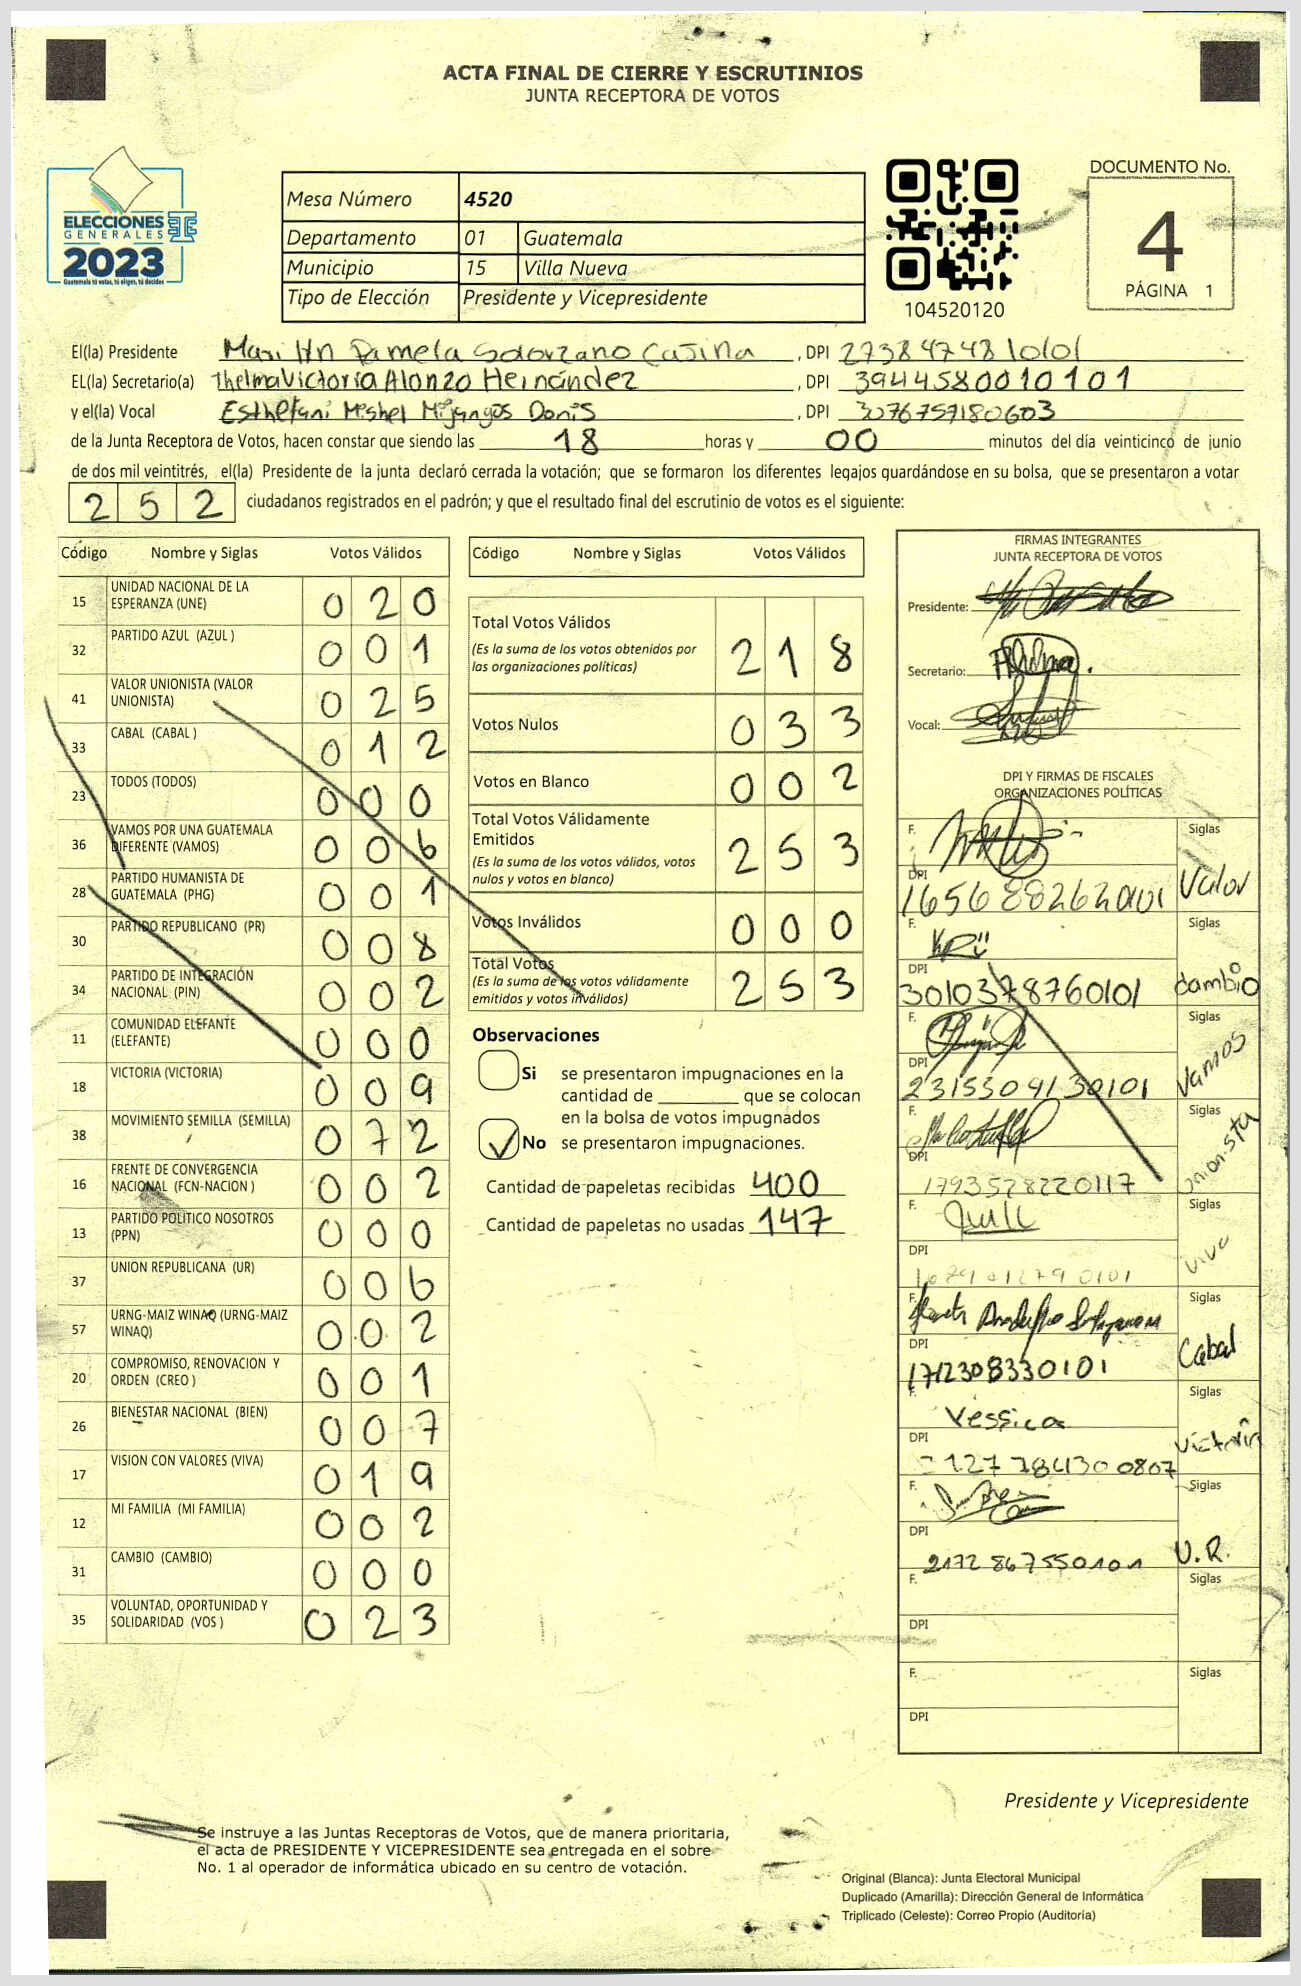 ACTA FINAL DE CIERRE Y ESCRUTINIOS
JUNTA RECEPTORA DE VOTOS
ELECCIONES
GENERALES
2023
Guatemala tú votas, tú eliges, tú decides
Mesa Número 4520
Departamento 01 Guatemala
Municipio 15 Villa Nueva
Tipo de Elección Presidente y Vicepresidente
104520120
DOCUMENTO No.
4
PÁGINA 1
El(la) Presidente Pamela Solorzano , DPI 2738474810101
EL(la) Secretario(a) Thelma Victoria Alonzo Hernández , DPI 3944580010101
y el(la) Vocal Esthefani Mishel Mijangos Donis , DPI 3076757180603
de la Junta Receptora de Votos, hacen constar que siendo las 18 horas y 00 minutos del día veinticinco de junio
de dos mil veintitrés, el(la) Presidente de la junta declaró cerrada la votación; que se formaron los diferentes legajos guardándose en su bolsa, que se presentaron a votar
252 ciudadanos registrados en el padrón; y que el resultado final del escrutinio de votos es el siguiente:
Código Nombre y Siglas Votos Válidos
15 UNIDAD NACIONAL DE LA ESPERANZA (UNE) 020
32 PARTIDO AZUL (AZUL ) 001
41 VALOR UNIONISTA (VALOR UNIONISTA) 025
33 CABAL (CABAL ) 012
23 TODOS (TODOS) 000
36 VAMOS POR UNA GUATEMALA DIFERENTE (VAMOS) 006
28 PARTIDO HUMANISTA DE GUATEMALA (PHG) 001
30 PARTIDO REPUBLICANO (PR) 008
34 PARTIDO DE INTEGRACIÓN NACIONAL (PIN) 002
11 COMUNIDAD ELEFANTE (ELEFANTE) 000
18 VICTORIA (VICTORIA) 009
38 MOVIMIENTO SEMILLA (SEMILLA) 072
16 FRENTE DE CONVERGENCIA NACIONAL (FCN-NACION ) 002
13 PARTIDO POLITICO NOSOTROS (PPN) 000
37 UNION REPUBLICANA (UR) 006
57 URNG-MAIZ WINAQ (URNG-MAIZ WINAQ) 002
20 COMPROMISO, RENOVACION Y ORDEN (CREO ) 001
26 BIENESTAR NACIONAL (BIEN) 007
17 VISION CON VALORES (VIVA) 019
12 MI FAMILIA (MI FAMILIA) 002
31 CAMBIO (CAMBIO) 000
35 VOLUNTAD, OPORTUNIDAD Y SOLIDARIDAD (VOS ) 023
Código Nombre y Siglas Votos Válidos
Total Votos Válidos 218
(Es la suma de los votos obtenidos por las organizaciones políticas)
Votos Nulos 033
Votos en Blanco 002
Total Votos Válidamente Emitidos 253
(Es la suma de los votos válidos, votos nulos y votos en blanco)
Votos Inválidos 000
Total Votos 253
(Es la suma de los votos válidamente emitidos y votos inválidos)
Observaciones
Si se presentaron impugnaciones en la
cantidad de ________ que se colocan
en la bolsa de votos impugnados
No se presentaron impugnaciones.
Cantidad de papeletas recibidas 400
Cantidad de papeletas no usadas 147
FIRMAS INTEGRANTES
JUNTA RECEPTORA DE VOTOS
Presidente:
Secretario:
Vocal:
DPI Y FIRMAS DE FISCALES
ORGANIZACIONES POLÍTICAS
F. Siglas
DPI 1656882620101 Valor
F. Siglas
DPI 3010378760101 Cambio
F. Siglas
DPI 2315304130101 Vamos
F. Siglas
DPI 1793528220117 Unionista
F. Siglas
DPI Viva
F. Siglas
DPI 1712308330101 Cabal
F. Yessica Siglas
DPI Victoria
F. Siglas
DPI 2172867550101 U.R.
F. Siglas
DPI
F. Siglas
DPI
Presidente y Vicepresidente
Se instruye a las Juntas Receptoras de Votos, que de manera prioritaria,
el acta de PRESIDENTE Y VICEPRESIDENTE sea entregada en el sobre
No. 1 al operador de informática ubicado en su centro de votación.
Original (Blanca): Junta Electoral Municipal
Duplicado (Amarilla): Dirección General de Informática
Triplicado (Celeste): Correo Propio (Auditoría)